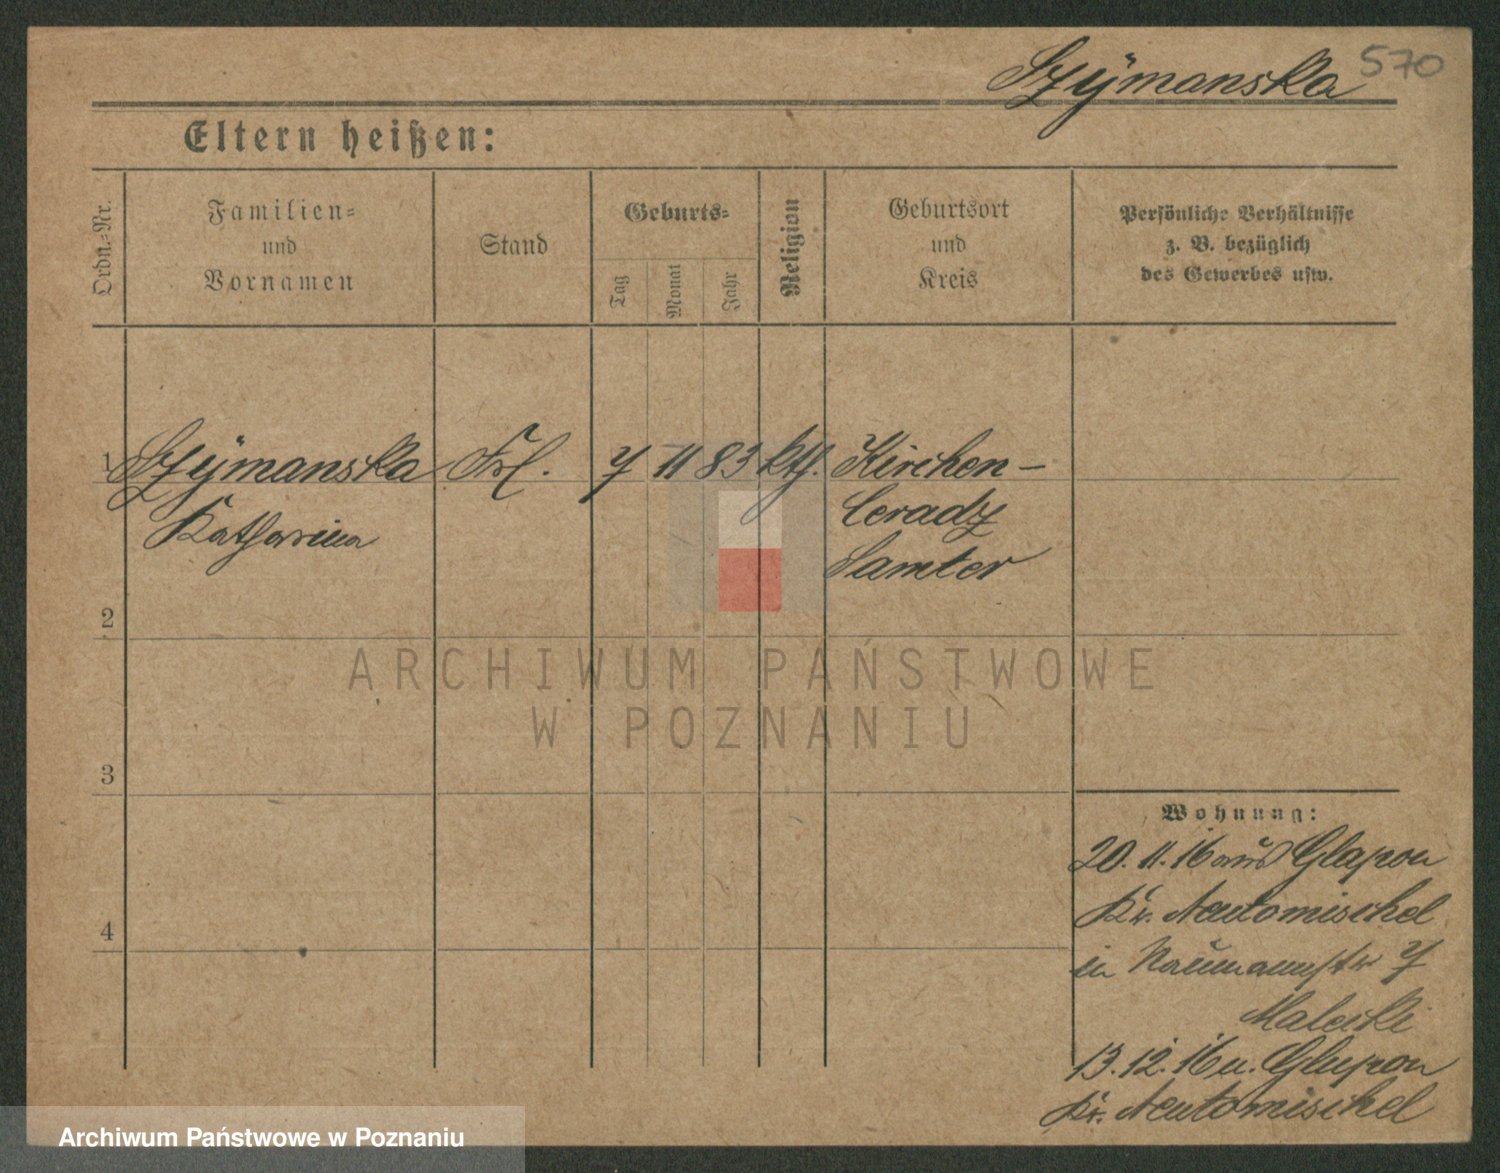 Szÿmanska 570
Eltern heißen:
Ordn.-Nr.
Familien-
und
Vornamen
Stand
Geburts-
Tag
Monat
Jahr
Religion
Geburtsort
und
Kreis
Persönliche Verhältnisse
z. B. bezüglich
des Gewerbes usw.
1 Szÿmanska Frl. 7 11 83 kth. Kirchen-
Katharina Ceradz
Samter
2
ARCHIWUM PAŃSTWOWE
W POZNANIU
3
Wohnung:
20. 11. 16 aus Glapon
Kr. Neutomischel
4
in Naumannstr 7
Malecki
13. 12. 16 n. Glupon
Kr. Neutomischel
Archiwum Państwowe w Poznaniu